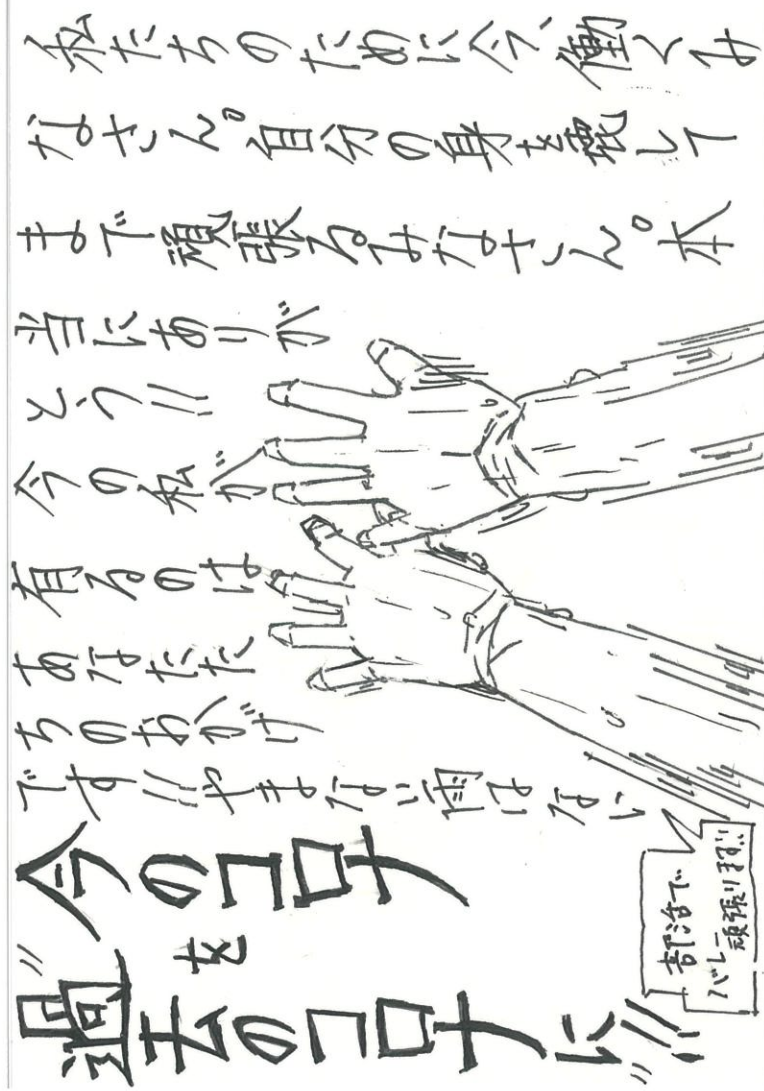 私たちのために今、働くみ
なさん。自分の身を して
まで頑張るみなさん。本
当にありが
とう!!
今の私が
有るのは
あなたた
ちのおかげ
です!!やまない雨はない
〝今のコロナ
を
過去のコロナに!!!〟
部活で
バレー
頑張ります!!